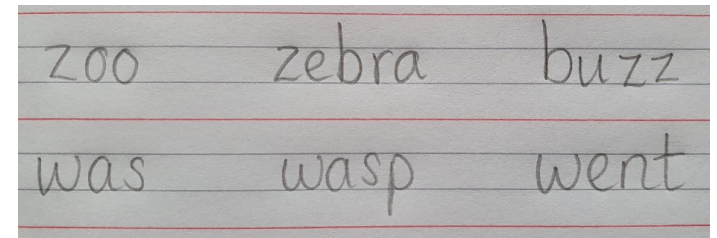 zoo zebra buzz
was wasp went